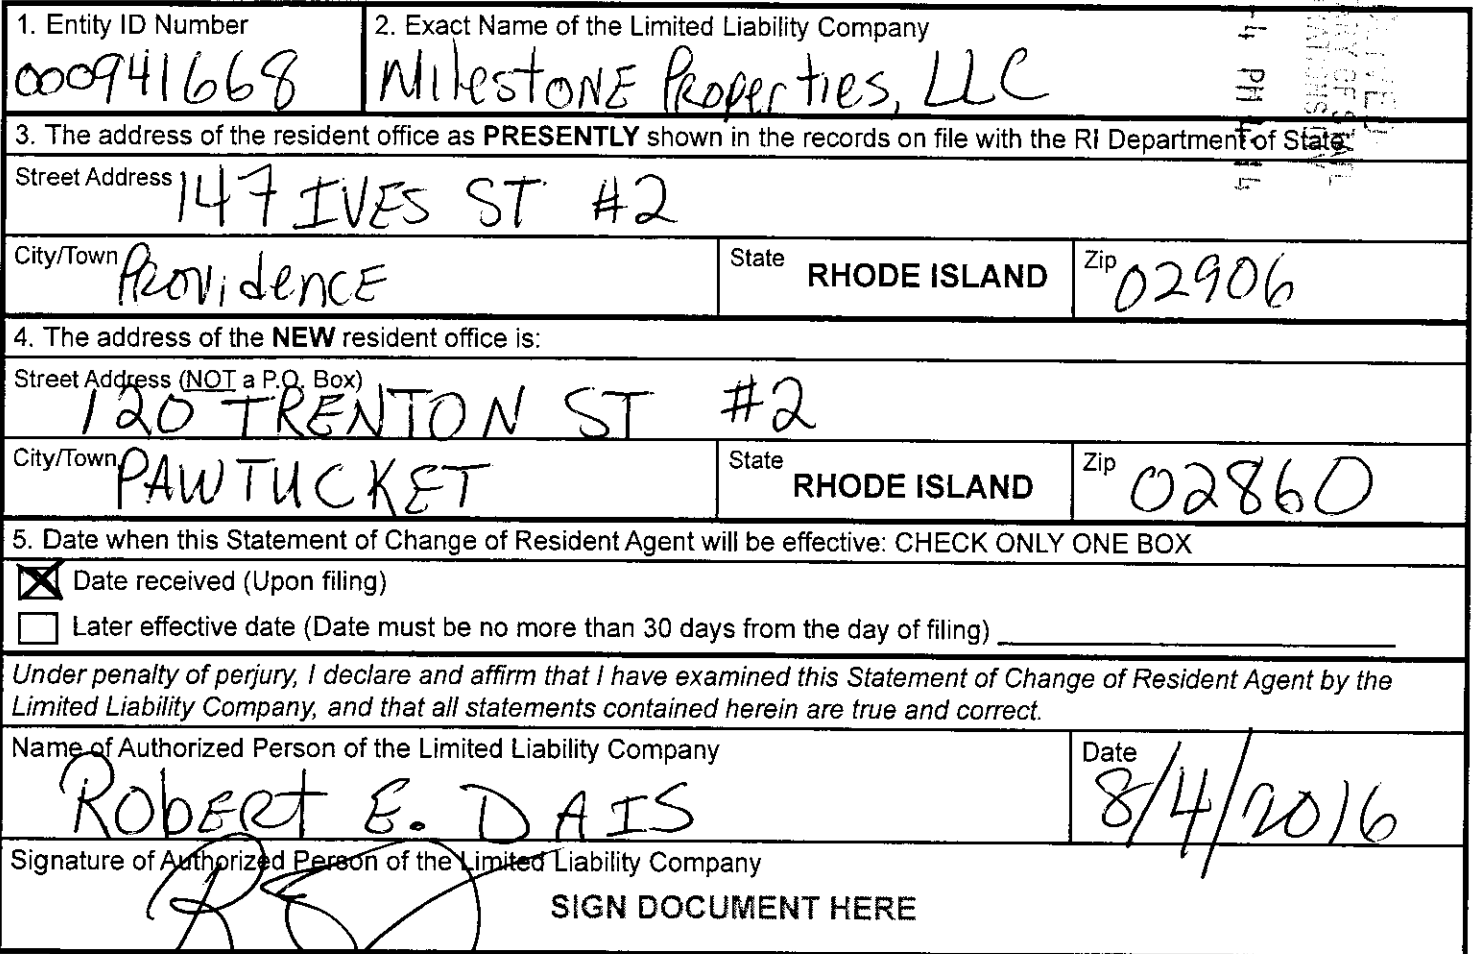 1. Entity ID Number
000941668
2. Exact Name of the Limited Liability Company
MilestONE Properties, LLC
3. The address of the resident office as PRESENTLY shown in the records on file with the RI Department of State
Street Address 147 IVES ST #2
City/Town PROVidence State RHODE ISLAND Zip 02906
4. The address of the NEW resident office is:
Street Address (NOT a P.O. Box)
120 TRENTON ST #2
City/Town PAWTUCKET State RHODE ISLAND Zip 02860
5. Date when this Statement of Change of Resident Agent will be effective: CHECK ONLY ONE BOX
Date received (Upon filing)
Later effective date (Date must be no more than 30 days from the day of filing)
Under penalty of perjury, I declare and affirm that I have examined this Statement of Change of Resident Agent by the
Limited Liability Company, and that all statements contained herein are true and correct.
Name of Authorized Person of the Limited Liability Company
RObERT E. DAIS
Date
8/4/2016
Signature of Authorized Person of the Limited Liability Company
SIGN DOCUMENT HERE